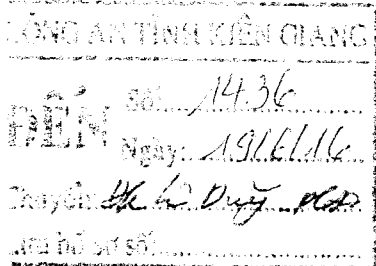 CÔNG AN TỈNH KIÊN GIANG
ĐẾN Số: 1436
Ngày: 19/6/16
Chuyển: Duy
Lưu hồ sơ số: